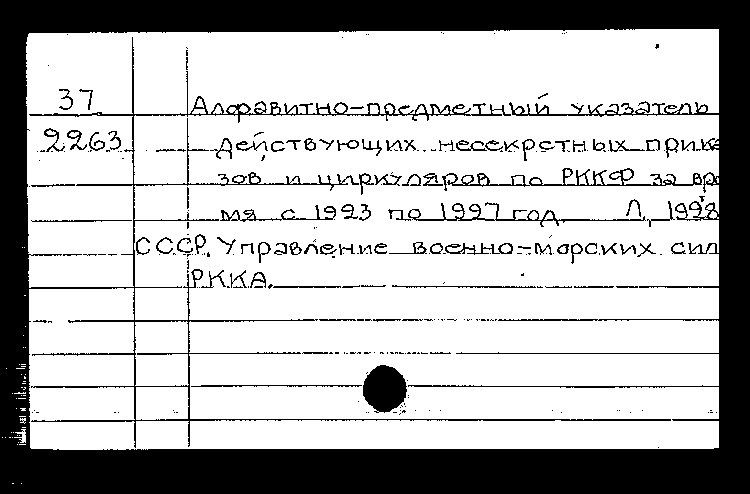 37 Алфавитно-предметный указатель
2263 действующих несекретных прика
зов и циркуляров по РККФ за вре
мя с 1923 по 1927 год. Л., 1928
СССР. Управление военно-морских сил
РККА.